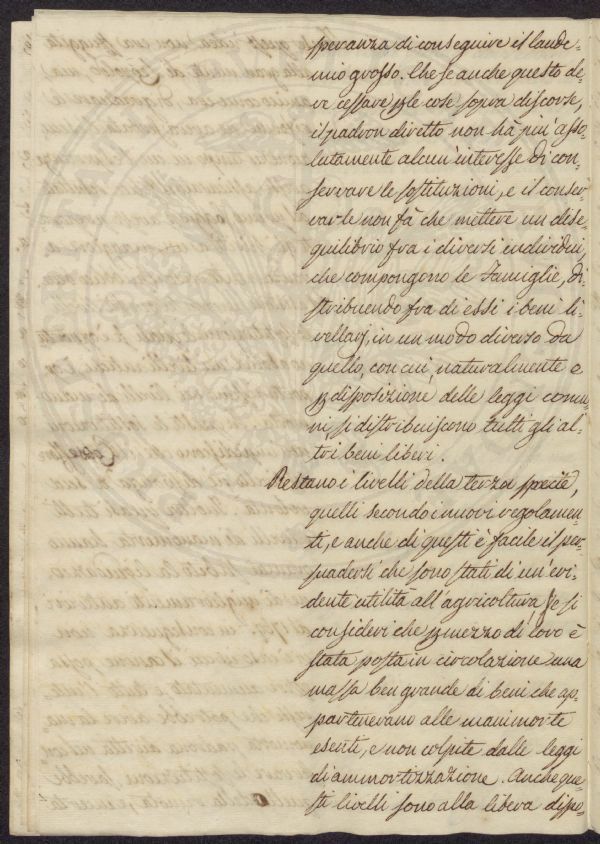 speranza di conseguire il laude=
mio grosso. Che se anche questo de=
ve cessare per le cose sopra discorse,
il padron diretto non hà piu' asso=
lutamente alcun'interesse di con=
servare le sostituzioni, e il conser=
varle non fà che mettere un dise=
quilibrio fra i diversi individui,
che compongono le Famiglie, di=
stribuendo fra di essi i beni li=
vellarj, in un modo diverso da
quello, con cui, naturalmente e
per disposizione delle leggi comu=
ni si distribuiscono tutti gli al=
tri beni liberi.
Restano i livelli della terza specie,
quelli secondo i nuovi regolamen=
ti, e anche di questi è facile il per=
suadersi che sono stati di un'evi=
dente utilità all'agricoltura, se si
consideri che per mezzo di loro è
stata posta in circolazione una
massa ben grande di beni che ap=
partenevano alle manimorte
esenti, e non colpite dalle leggi
di ammortizzazione. Anche que=
sti livelli sono alla libera dispo=